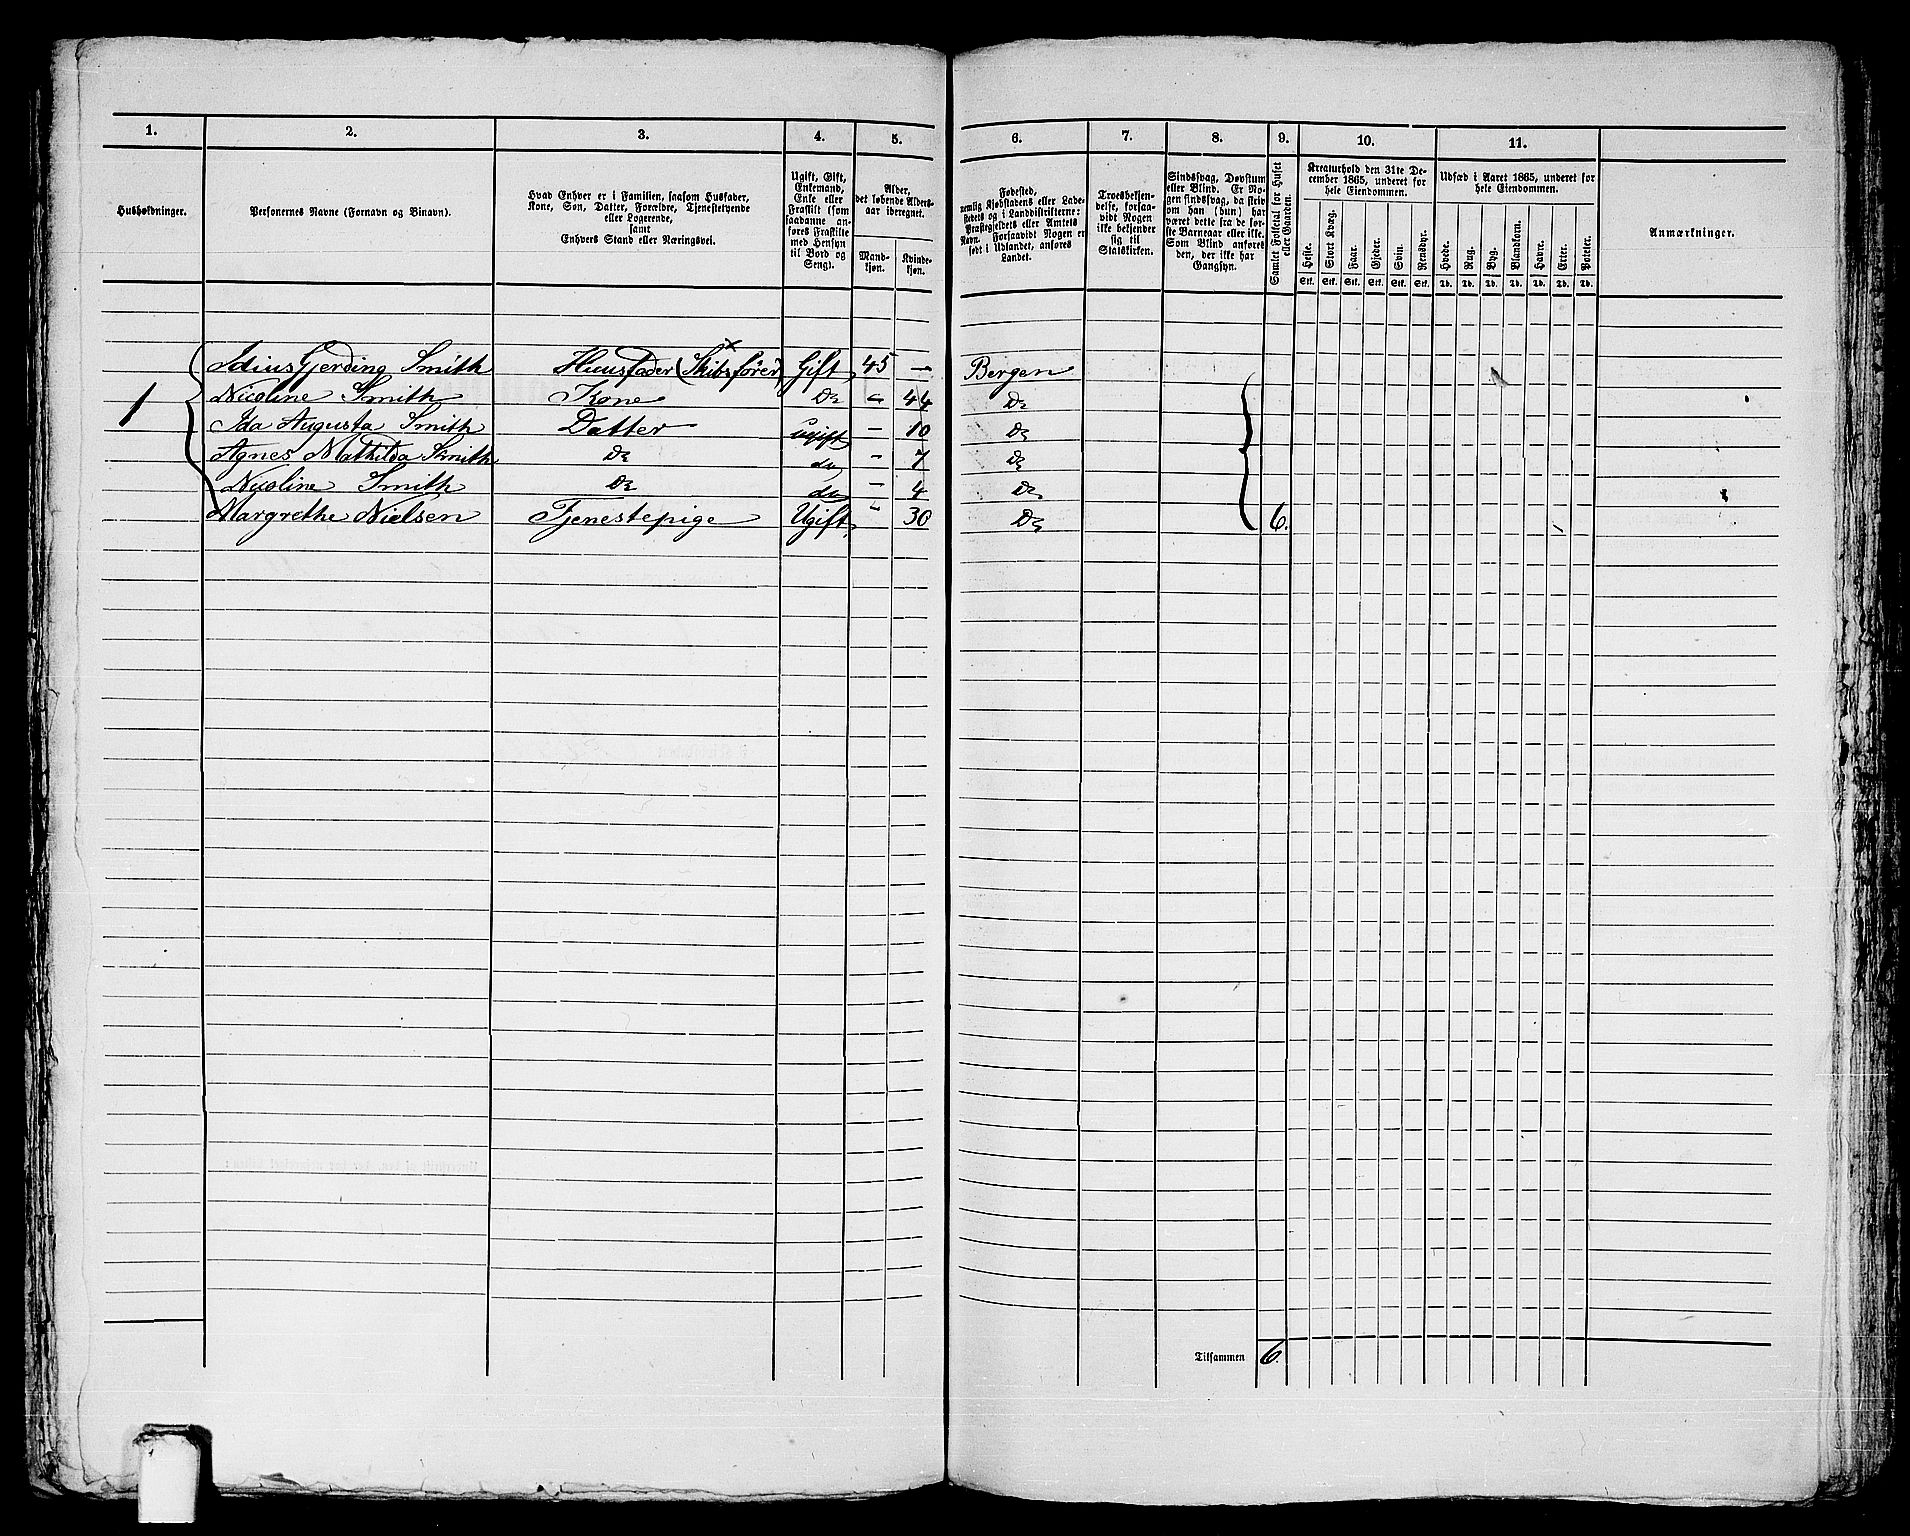 1. 2. 3. 4. 5. 6. 7. 8. 9. 10. 11.
Husholdninger.
Personernes Navne (Fornavn og Binavn).
Hvad Enhver er i Familien, saasom Husfader,
Kone, Søn, Datter, Forældre, Tjenestetyende
eller Logerende,
samt
Enhvers Stand eller Næringsvei.
Ugift, Gift,
Enkemand,
Enke eller
Fraskilt (som
saadanne an-
føres Fraskilte
med Hensyn
til Bord og
Seng).
Alder,
det løbende Alders-
aar iberegnet.
Mand-
kjøn.
Kvinde-
kjøn.
Fødested,
nemlig Kjøbstadens eller Lade-
stedets og i Landdistrikterne:
Præstegjeldets eller Amtets
Navn. Forsaavidt Nogen er
født i Udlandet, anføres
Landet.
Troesbekjen-
delse, forsaa-
vidt Nogen
ikke bekjender
sig til
Statskirken.
Sindssvag, Døvstum
eller Blind. Er No-
gen sindssvag, da skriv
om han (hun) har
været dette fra de før-
ste Barneaar eller ikke.
Som Blind anføres
den, der ikke har
Gangsyn.
Samlet Folketal for Huset
eller Gaarden.
Kreaturhold den 31te De-
cember 1865, underet for
hele Eiendommen.
Heste. Stort Kvæg. Faar. Gjeder. Svin. Rensdyr.
Stk. Stk. Stk. Stk. Stk. Stk.
Udsæd i Aaret 1865, underet for
hele Eiendommen.
Hvede. Rug. Byg. Blandkorn. Havre. Erter. Poteter.
Td. Td. Td. Td. Td. Td. Td.
Anmærkninger.
Gjerding Smith Huusfader (Skibsfører) Gift 45 — Bergen
1 Nicoline Smith Kone Do - 44 Do
Ida Augusta Smith Datter ugift - 10 Do
Agnes Mathilda Smith Do do - 7 Do
Nicoline Smith Do do - 4 Do
Margrethe Nielsen Tjenestepige Ugift - 30 Do 6.
Tilsammen 6.